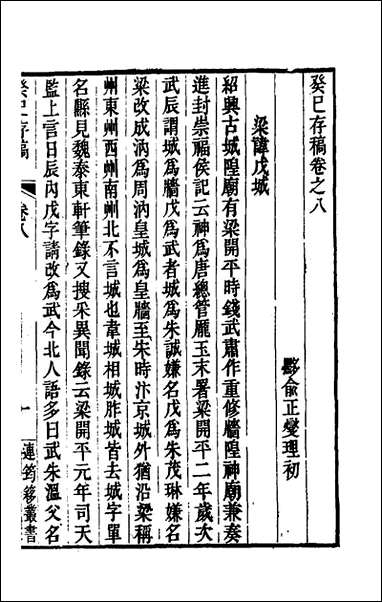 癸巳存稿卷之八
黟俞正燮理初
梁諱戊城
紹興古城隍廟有梁開平時錢武肅作重修牆隍神廟兼奏
進封崇福侯記云神爲唐總管龐玉末署梁開平二年歲次
武辰謂城爲牆戊爲武者城爲朱誠嫌名戊爲朱茂琳嫌名
梁改成汭爲周汭皇城爲皇牆至朱時汴京城外猶沿梁稱
州東州西州南州北不言城也韋城相城胙城皆去城字單
名縣見魏泰東軒筆錄又搜采異聞錄云梁開平元年司天
監上言日辰內戊字請改爲武今北人語多曰武朱溫父名
癸巳存稿
卷八
一
連筠簃叢書